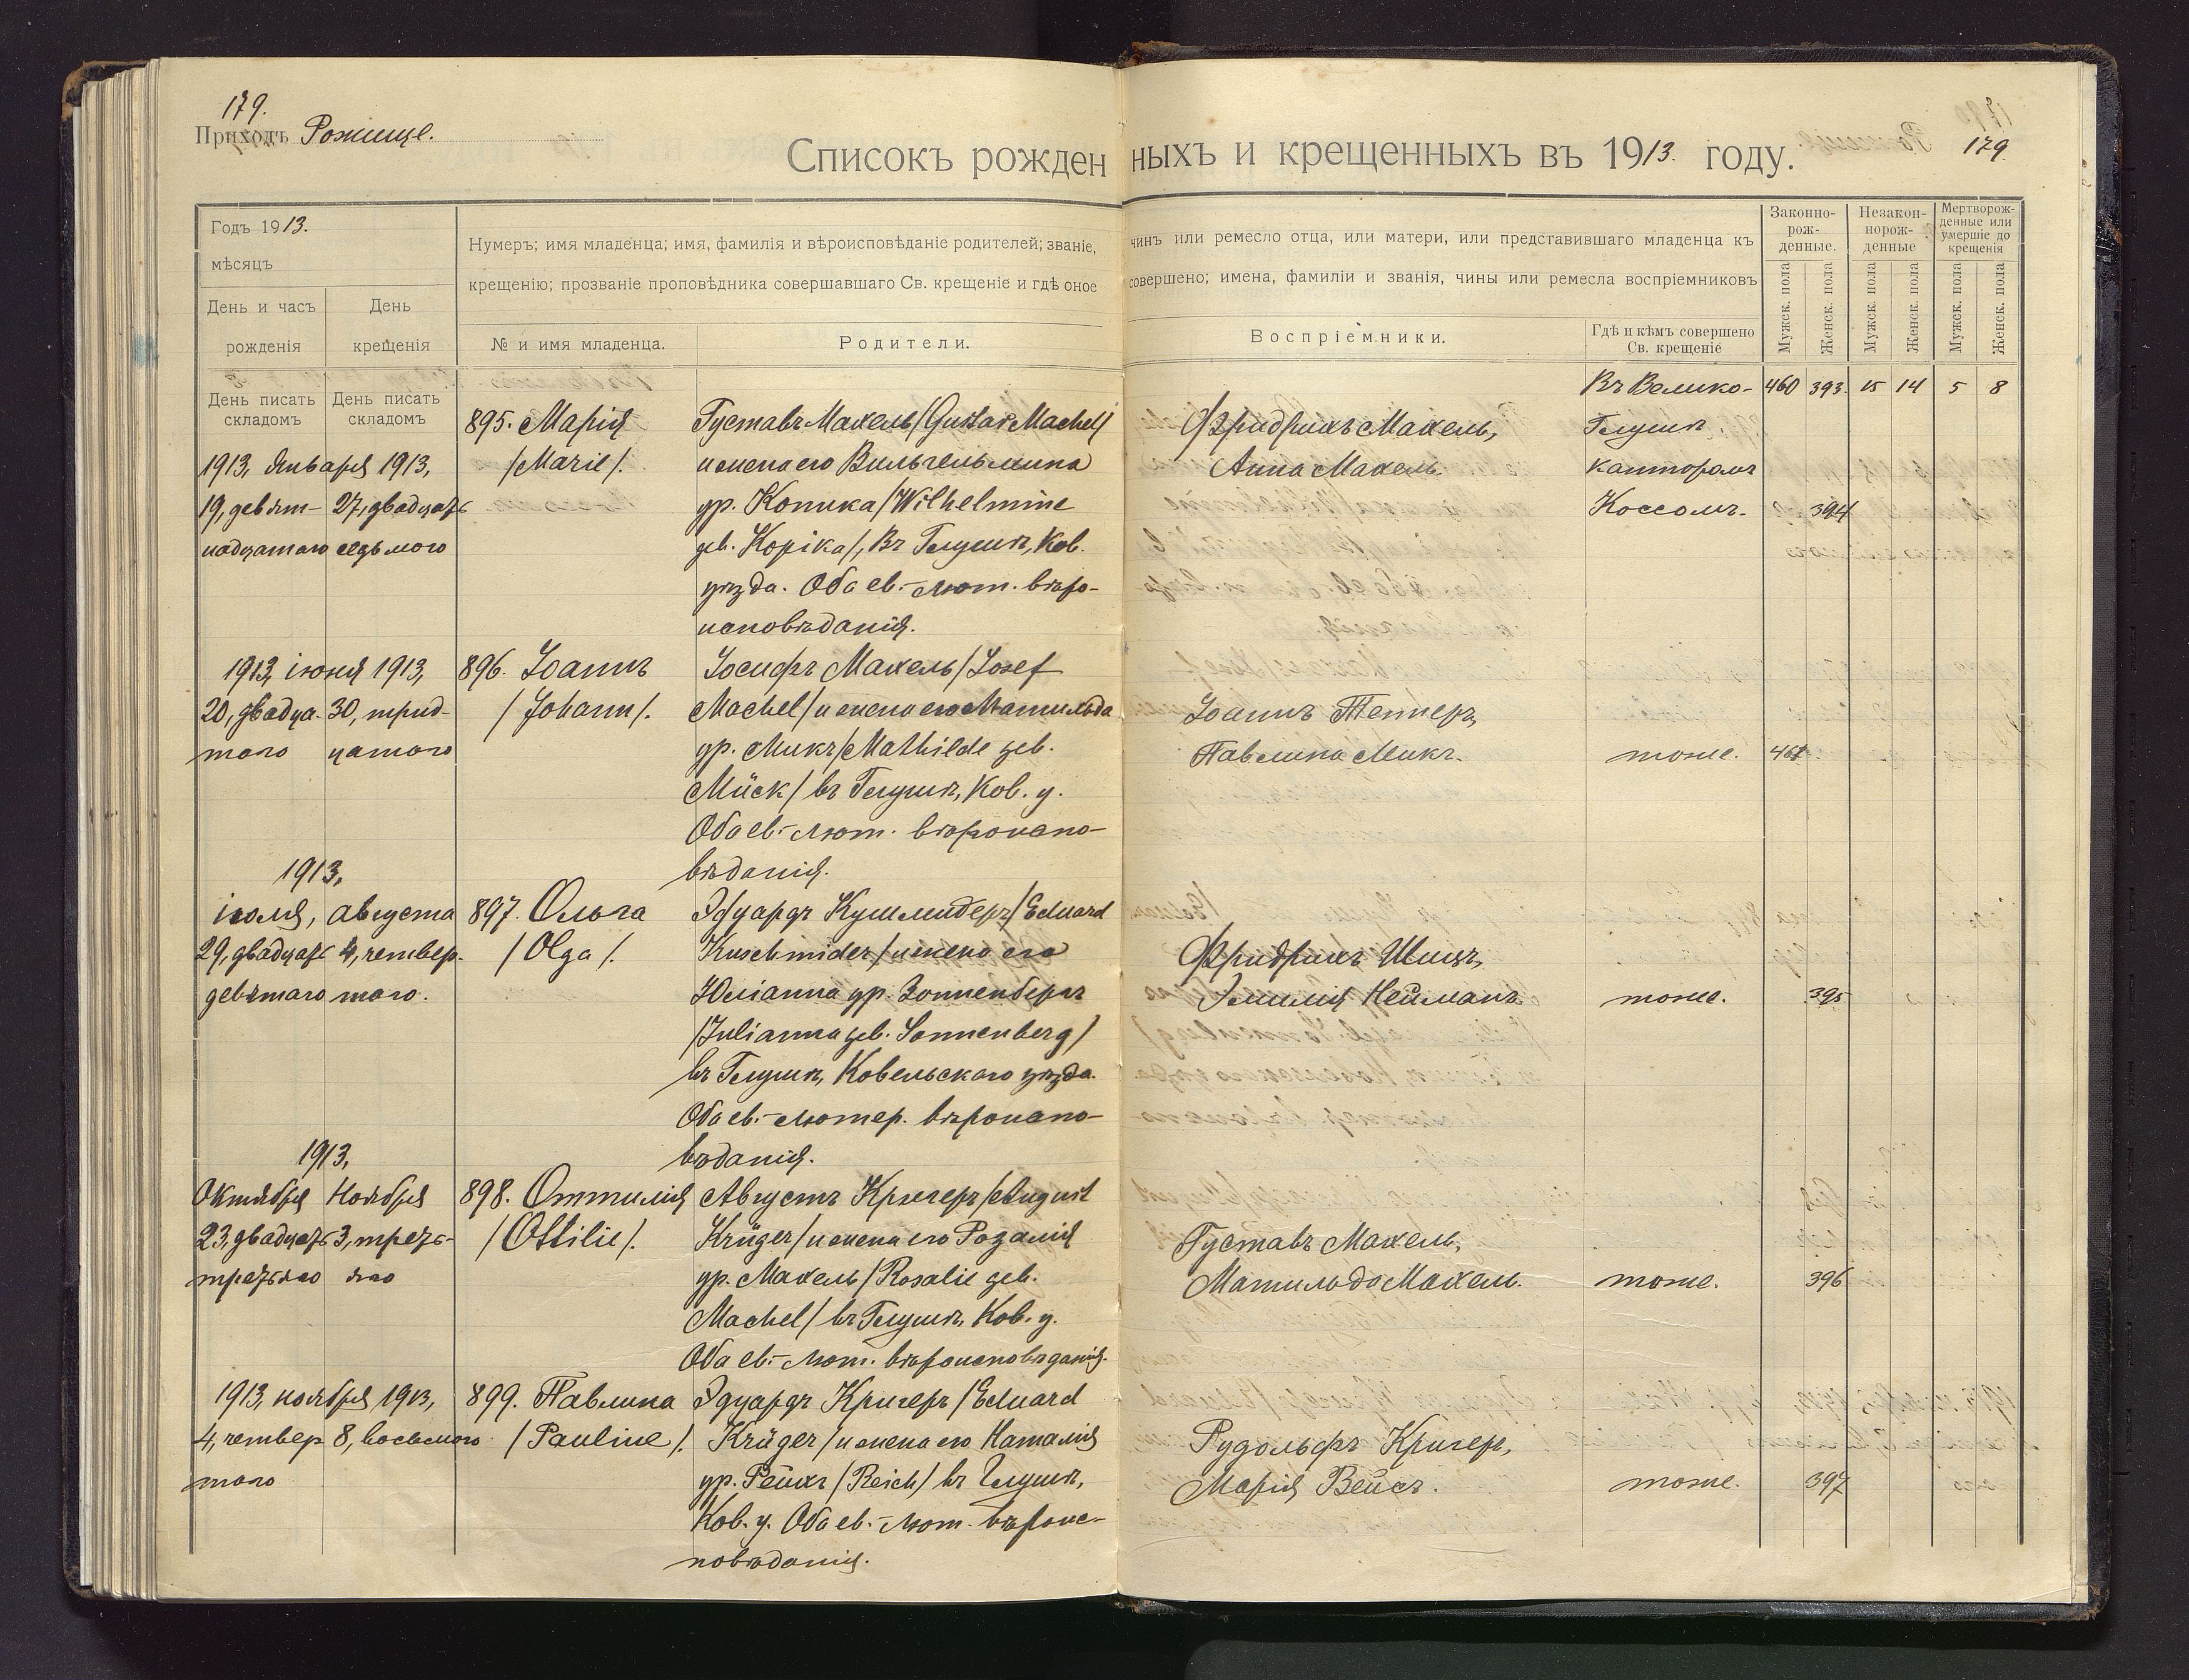 179.
Приходъ Рожище.
Списокъ рожденныхъ и крещенныхъ въ 1913. году.
179.
Годъ 1913.
мѣсяцъ
День и часъ рожденія
День крещенія
День писать складомъ
День писать складомъ
Нумеръ; имя младенца; имя, фамилія и вѣроисповѣданіе родителей; званіе, чинъ или ремесло отца, или матери, или представившаго младенца къ
крещенію; прозваніе проповѣдника совершавшаго Св. крещеніе и гдѣ оное совершено; имена, фамиліи и званія, чины или ремесла воспріемниковъ
№ и имя младенца.
Родители.
Воспріемники.
Гдѣ и кѣмъ совершено Св. крещеніе
Законно-рож-денные.
Незакон-норож-денные
Мертворож-денные или умершіе до крещенія
Мужск. пола
Женск. пола
Мужск. пола
Женск. пола
Мужск. пола
Женск. пола
460 393. 15 14 5 8
1913, Января 1913,
19, девят-
надцатаго
27, двадцать
седьмого
895. Марія
/Marie/.
Густавъ Махель/Gustav Machel/
и жена его Вильгельмина
ур. Копика/Wilhelmine
geb. Kopika/, въ Глушѣ, Ков.
уѣзда. Оба ев.-лют. вѣро-
исповѣданія.
Фридрихъ Махель,
Анна Махель.
Въ Велико-
Глушѣ
канторомъ
Коссомъ.
394
1913, іюня 1913,
20, двадца-
таго
30, трид-
цатаго
896. Іоаннъ
/Johann/.
Іосифъ Махель/Josef
Machel/и жена его Матильда
ур. Микъ/Mathilde geb.
Mück/ въ Глушѣ, Ков. у.
Оба ев.-лют. вѣроиспо-
вѣданія.
Іоаннъ Теппер,
Павлина Микъ.
тоже.
461
1913,
іюля, августа
29, двадцать
девятаго
4, четвер-
таго.
897. Ольга
/Olga/.
Эдуардъ Кушмидеръ/Eduard
Kuschmider/и жена его
Юліанна ур. Зонненбергъ
/Julianna geb. Sonnenberg/
въ Глушѣ, Ковельскаго уѣзда.
Оба ев.-лютер. вѣроиспо-
вѣданія.
Фридрихъ Шицъ,
Эмилія Нейманъ
тоже.
395
1913,
Октября Ноября
23, двадцать
третьяго
3, треть-
яго
898. Оттилія
/Ottilie/.
Августъ Крюгеръ/August
Krüger/и жена его Розалія
ур. Махель/Rosalie geb.
Machel/ въ Глушѣ, Ков. у.
Оба ев.-лют. вѣроисповѣданія.
Густавъ Махель,
Матильда Махель.
тоже.
396
1913, ноября 1913,
4, четвер
таго
8, восьмого
899. Павлина
/Pauline/.
Эдуардъ Кригеръ/Eduard
Krüger/и жена его Наталія
ур. Рейхъ/Reich/ въ Глушѣ,
Ков. у. Оба ев.-лют. вѣроис-
повѣданія.
Рудольфъ Кригер,
Марія Вейсъ.
тоже.
397